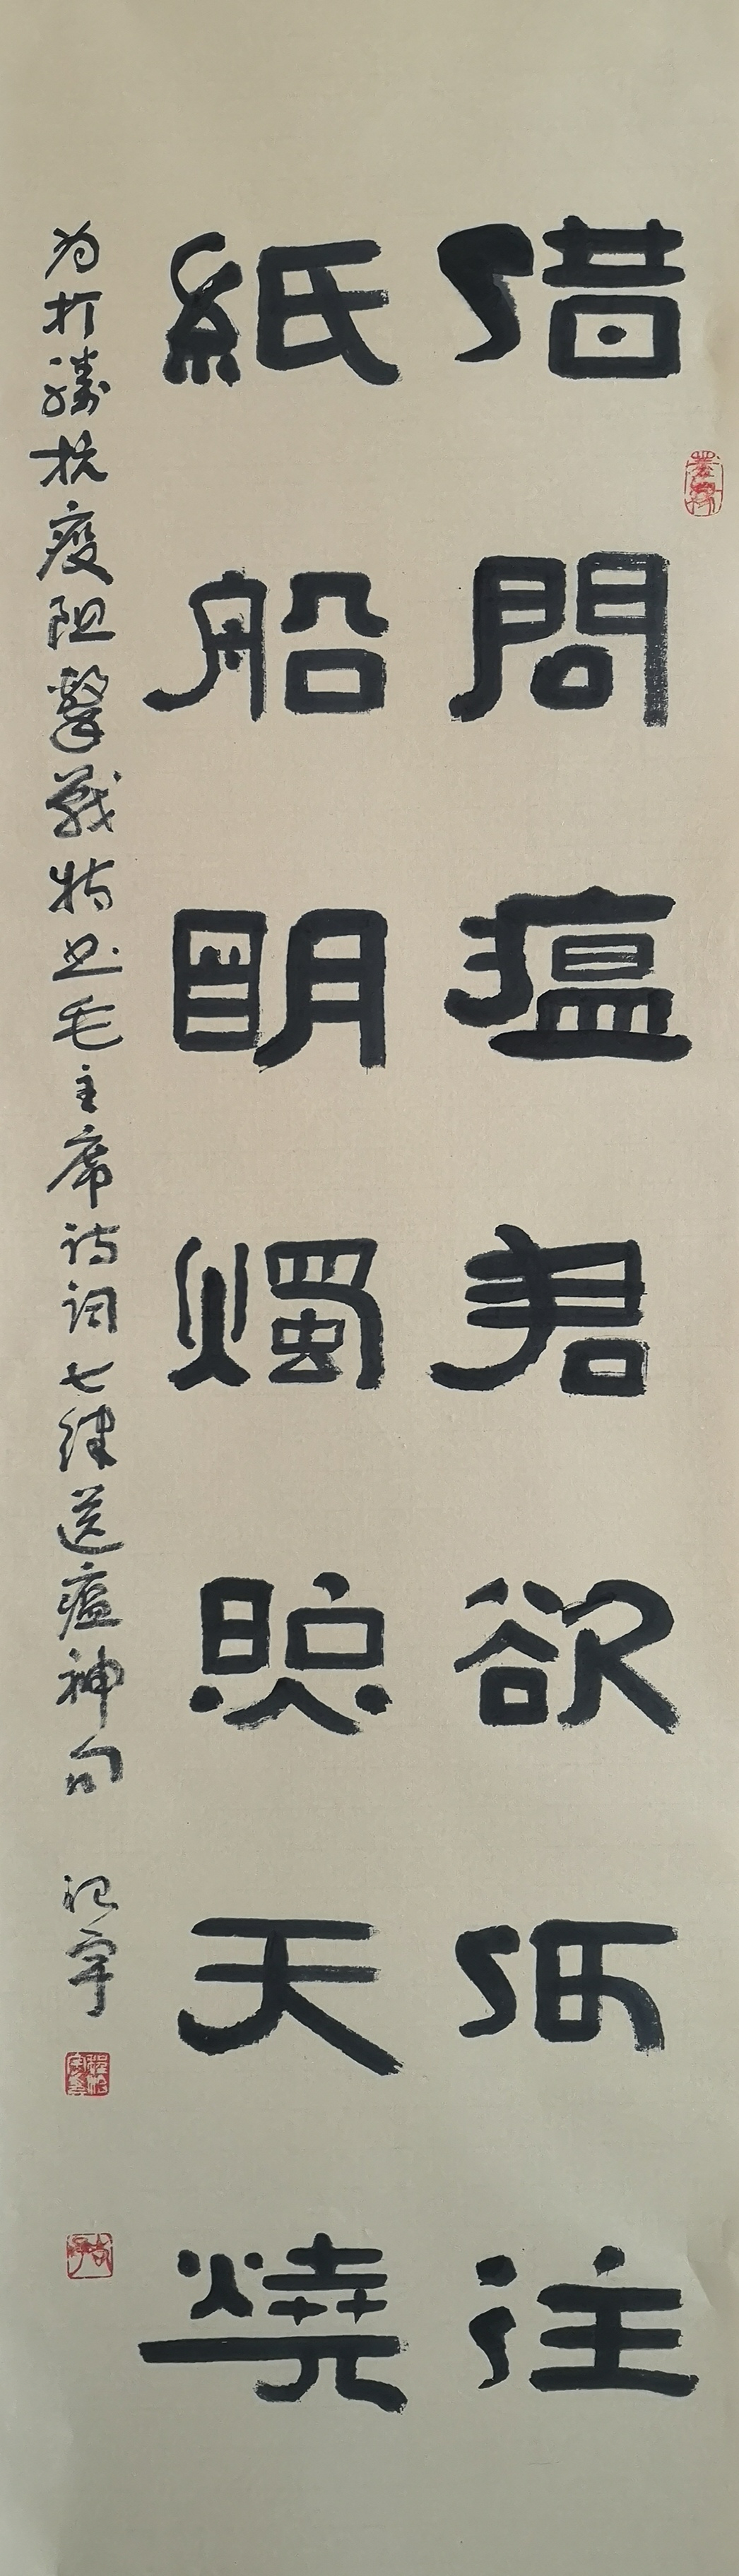 借問瘟君欲何往
紙船明燭照天燒
为打勝抗疫阻擊战特书毛主席诗词七律送瘟神句
祝宇